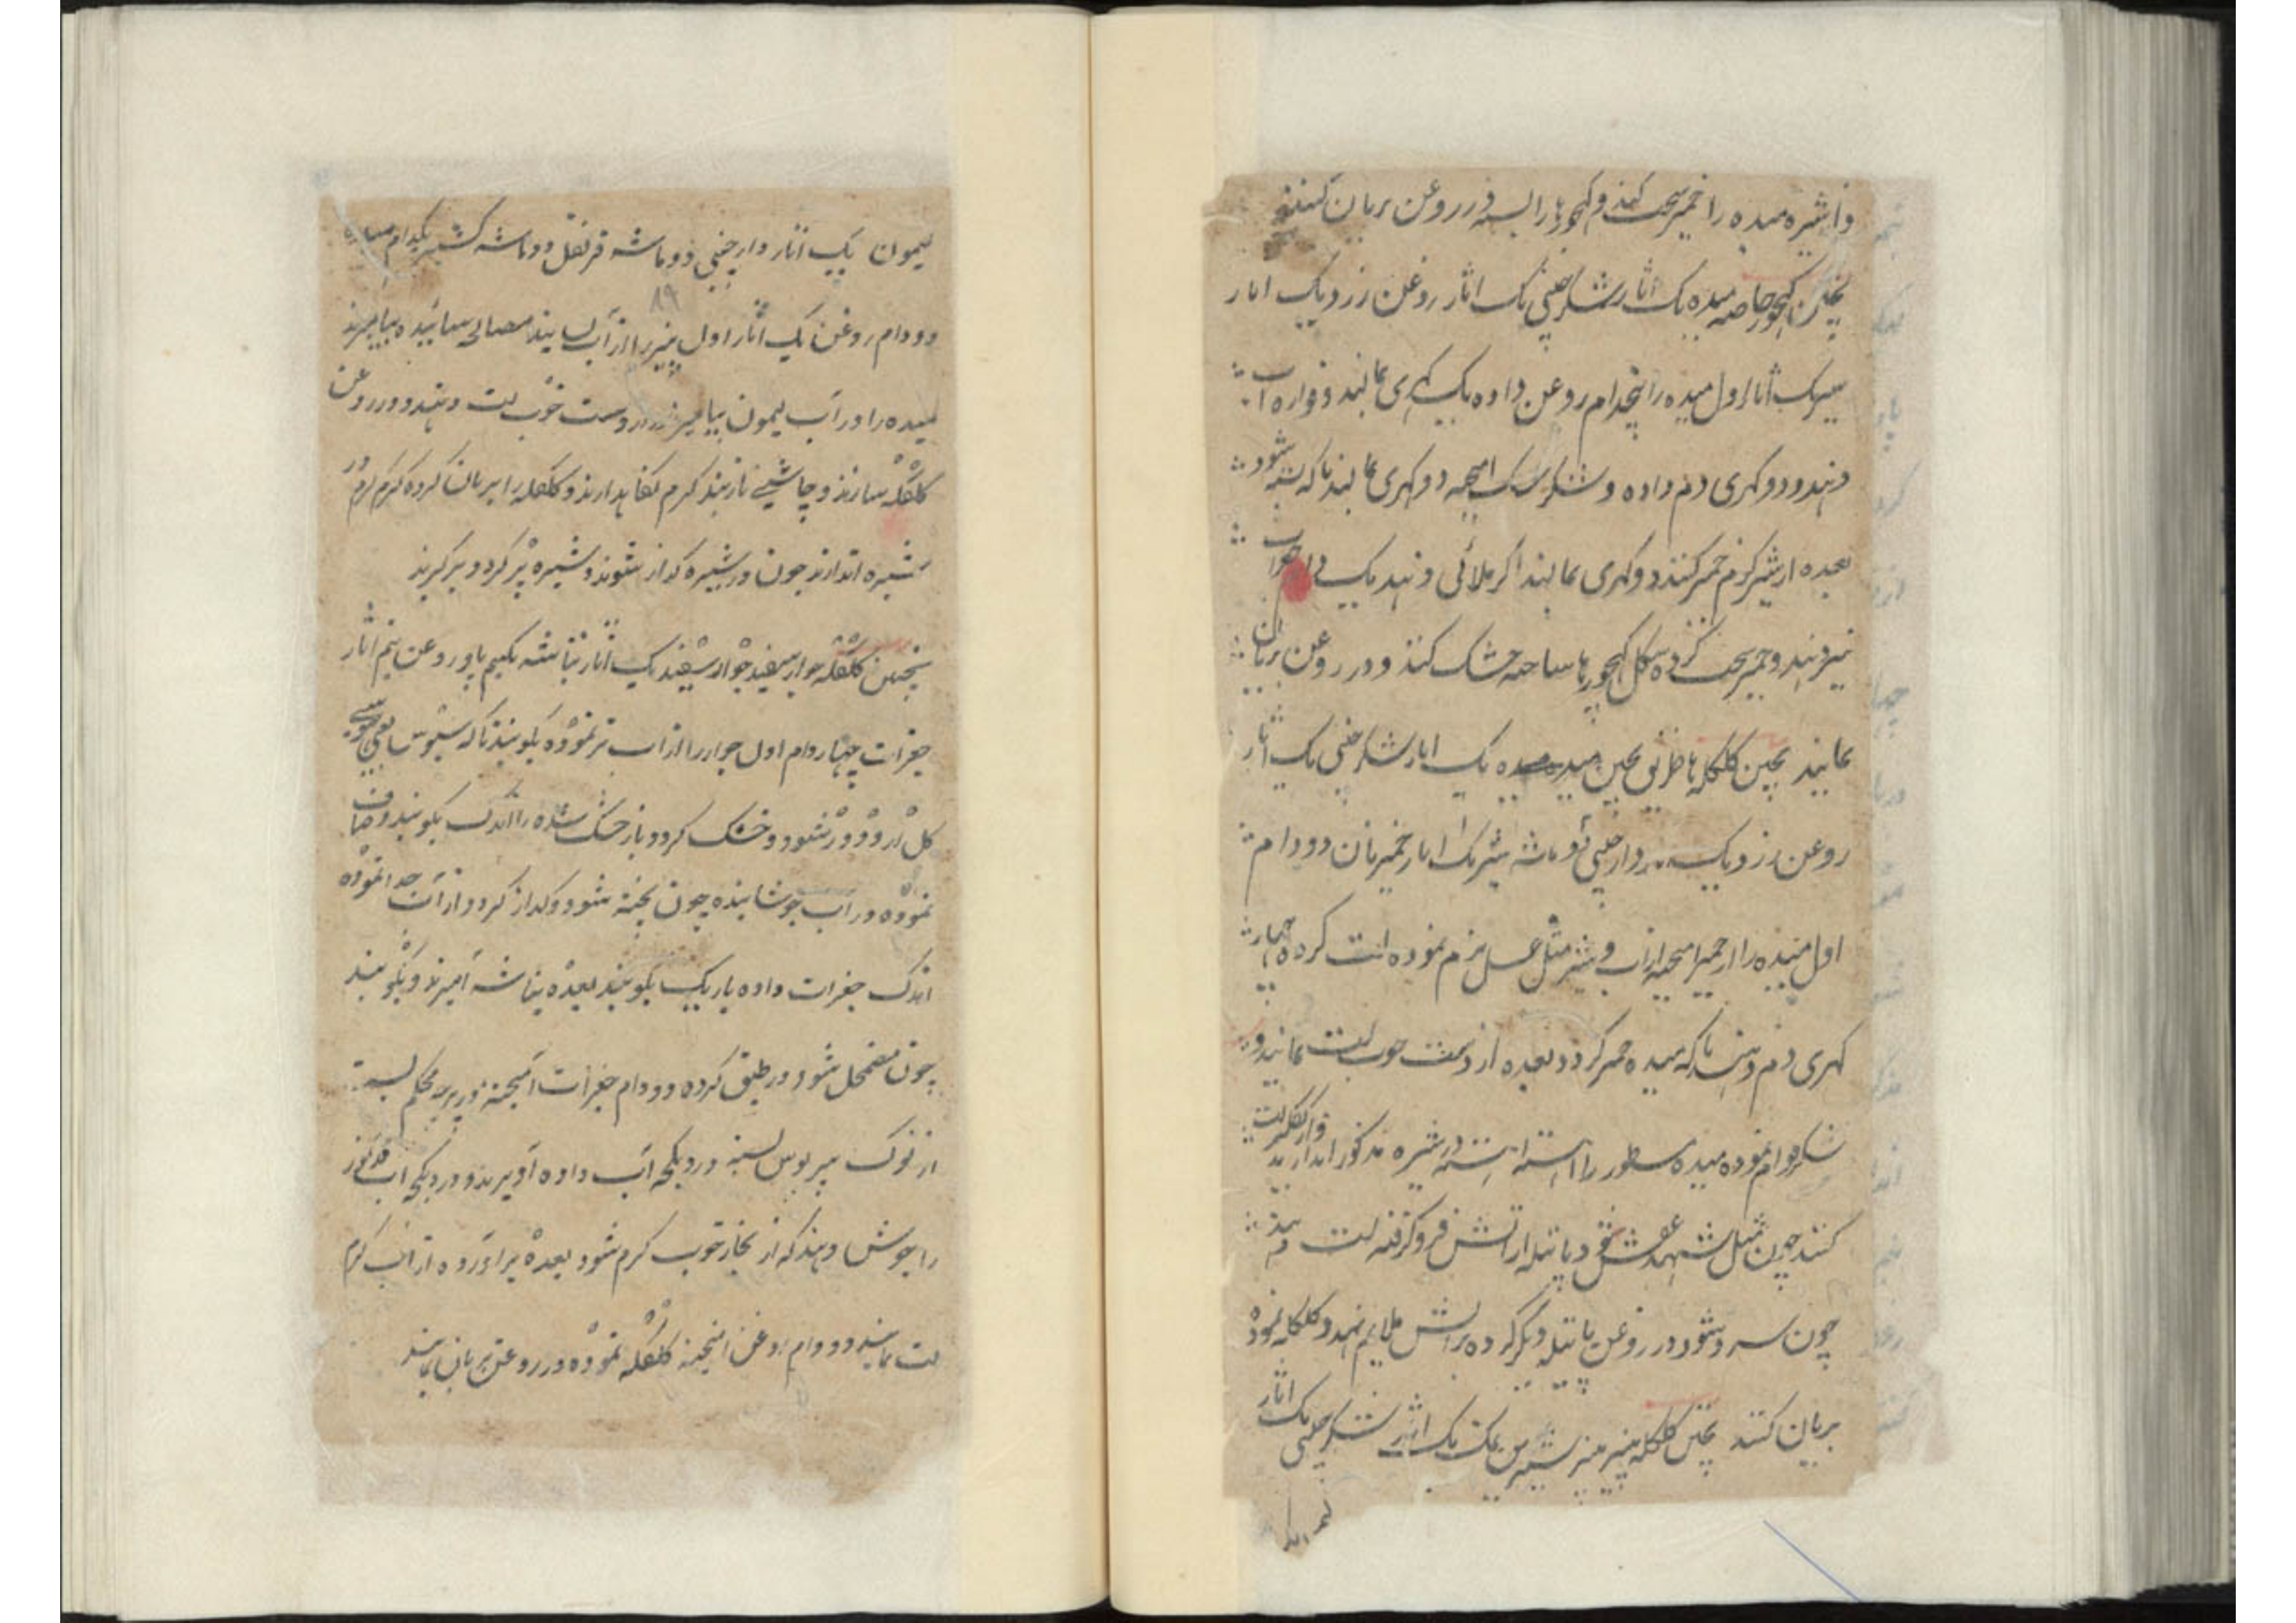 و از شیره میده را خمیر سخت کنند و کهجور ها را بسته در روغن بریان کنند
پختن کهجور خاصه میده یک اثار شکر چینی یک اثار روغن زرد یک اثار
شیر یک اثار اول میده را پنجدام روغن داده یک کهری بمالند و قواره آب
دهند و دو کهری دم داده و شکر آمیخته دو کهری بمالند تا که شود
بعده از شیر گرم خمیر کنند دو کهری بمالند اگر ملائی دهند یک
خمیر سخت کرده شکل کهجور ها ساخته خشک کنند و در روغن بریان
نمایند پختن کلکله ها طریق پختن میده یک اثار شکر چینی یک اثار
روغن زرد یک دارچینی دو ماشه شیر یک اثار خمیر نان دو دام
اول میده را از خمیر آمیخته از آب و شیر مثل عسل نرم نموده لت کرده چهار
کهری دم دهند تا که میده خمیر گردد بعده از دست خوب لت نمایند و
شکر قوام نموده میده مسطور را آهسته آهسته در شیره مذکور اندازند و از کفگیر لت
کنند چون مثل شهد شود پاتیله از آتش فرو گرفته لت
چون سرد شود در روغن پاتیله دیگر کرده بر آتش ملایم نهند و کلکله نموده
بریان کنند پختن کلکله پنیر پنیر شیرین یک اثار شکر چینی یک اثار
لیمون یک اثار دارچینی دو ماشه قرنفل دو ماشه کشنیز یکدام میده
۸۹
دو دام روغن یک اثار اول پنیر را از آب بسایند مصالح سائیده بیامیزند
میده را در آب لیمون بیامیزند از دست خوب لت دهند و در روغن
کلکله سازند و چاشنی تار بند گرم نگاهدارند و کلکله را بریان کرده گرم گرم در
شیره اندازند چون در شیره گداز شوند و شیره پر گردد بر گیرند
پختن کلکله جوار سفید جوار سفید یک اثار بتاشه یکنیم پاو روغن نیم اثار
جغرات چهار دام اول جوار را از آب تر نموده بکوبند تا که سبوس یعنی بهوسی
کل از و دور شود و خشک گردد باز خشک شده را اندک بکوبند و صاف
نموده در آب جوشانیده چون پخته شود و گداز گردد از آب جدا نموده
اندک جغرات داده باریک بکوبند بعده بتاشه آمیزند و بکوبند
چون مضمحل شود در طبق کرده دو دام جغرات آمیخته در پارچه محکم بسته
از نوک سرپوش بسته در دیگچه آب داده آویزند و در دیگچه آب
را جوش دهند که از بخار خوب گرم شود بعده بر آورده از آب گرم
لت نمایند و دو دام روغن آمیخته کلکله نموده در روغن بریان نمایند